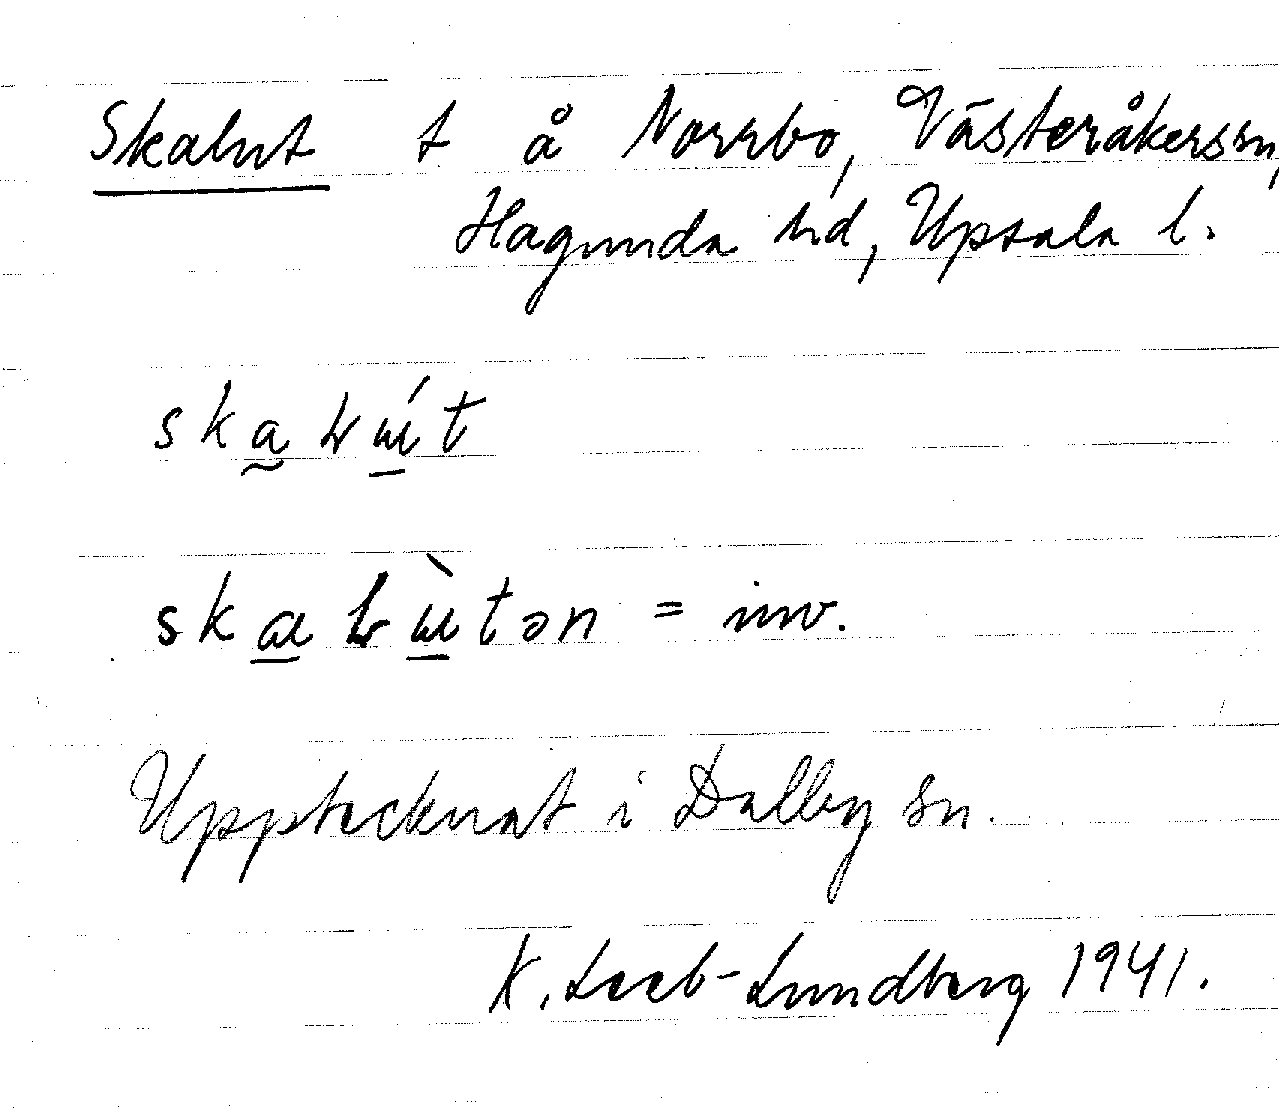 Skalut t å Norrbo, Västeråkerssn,
Hagunda hd, Upsala l.
= inv.
Upptecknat i Dalby sn.
K. Leeb-Lundberg 1941.